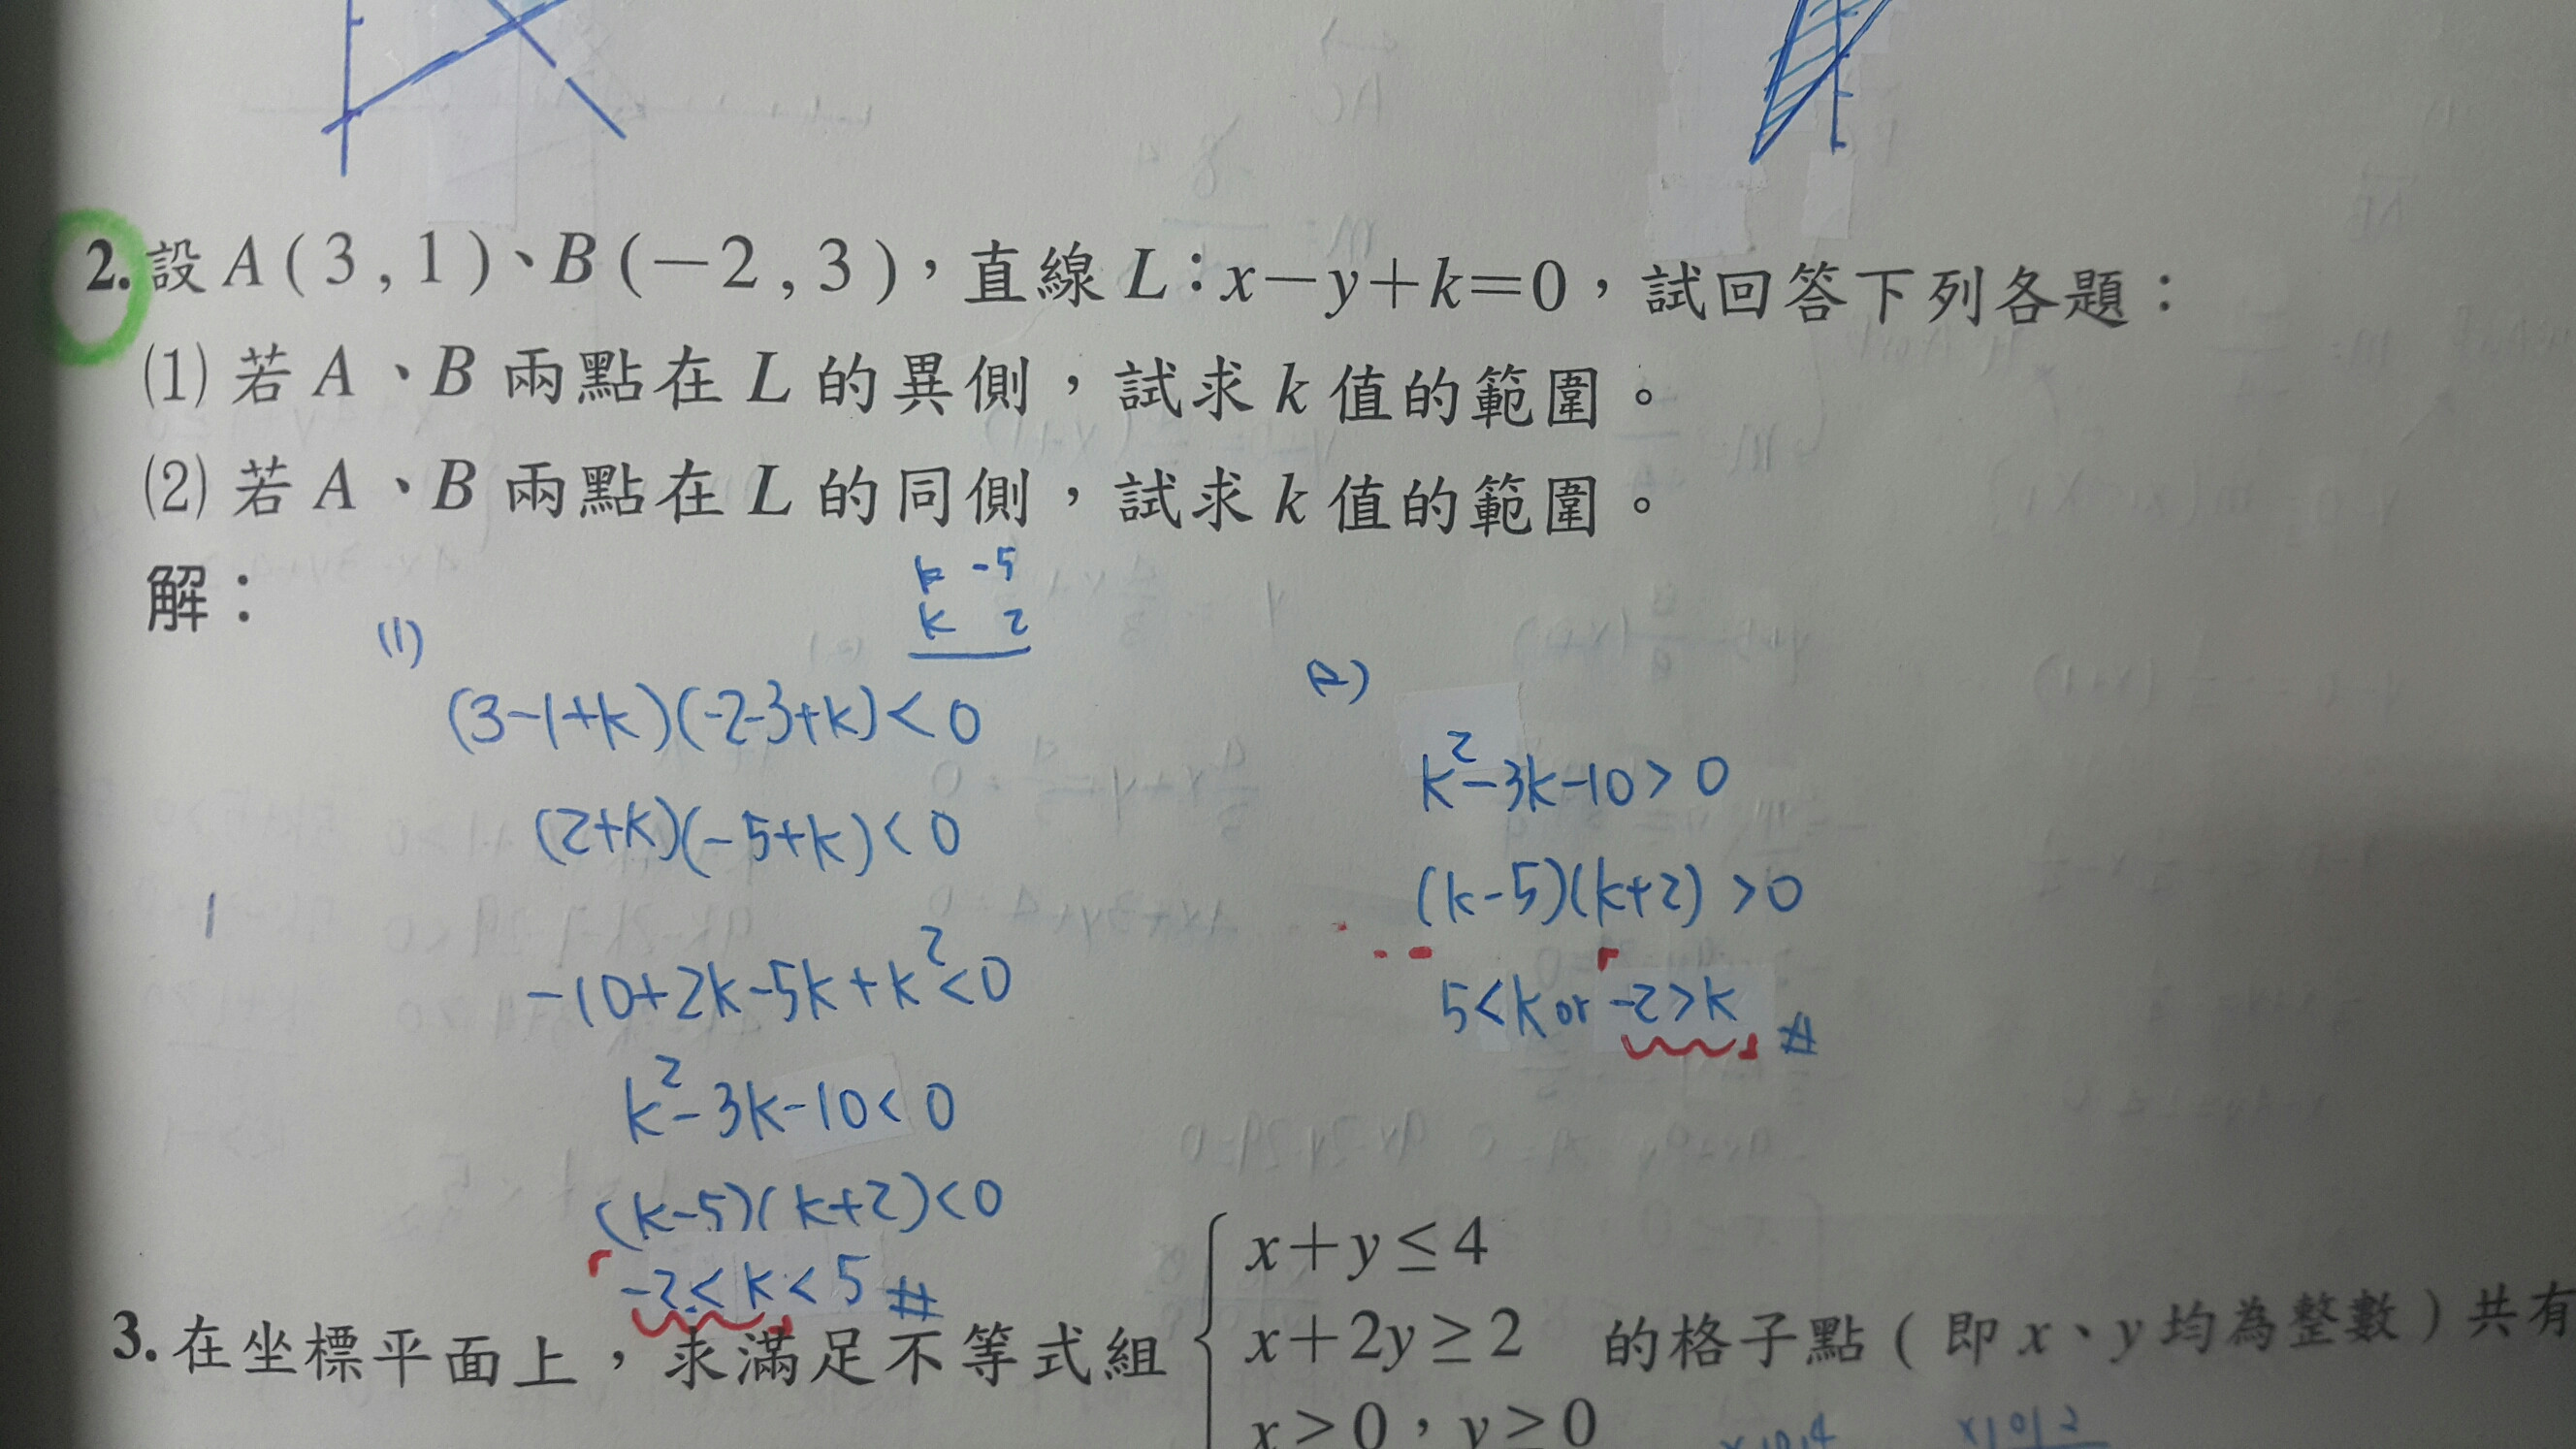 2. 設 A ( 3 , 1 )、B ( −2 , 3 )，直線 L：x−y+k=0，試回答下列各題：
(1) 若 A 、B 兩點在 L 的異側，試求 k 值的範圍。
(2) 若 A 、B 兩點在 L 的同側，試求 k 值的範圍。
解：
k -5
k 2
(1)
(3-1+k)(-2-3+k)<0
(2+k)(-5+k)<0
-10+2k-5k+k²<0
k²-3k-10<0
(k-5)(k+2)<0
-2<k<5 #
(2)
k²-3k-10>0
(k-5)(k+2)>0
5<k or -2>k #
3. 在坐標平面上，求滿足不等式組
x+y≤4
x+2y≥2
的格子點 ( 即 x、y 均為整數 ) 共有